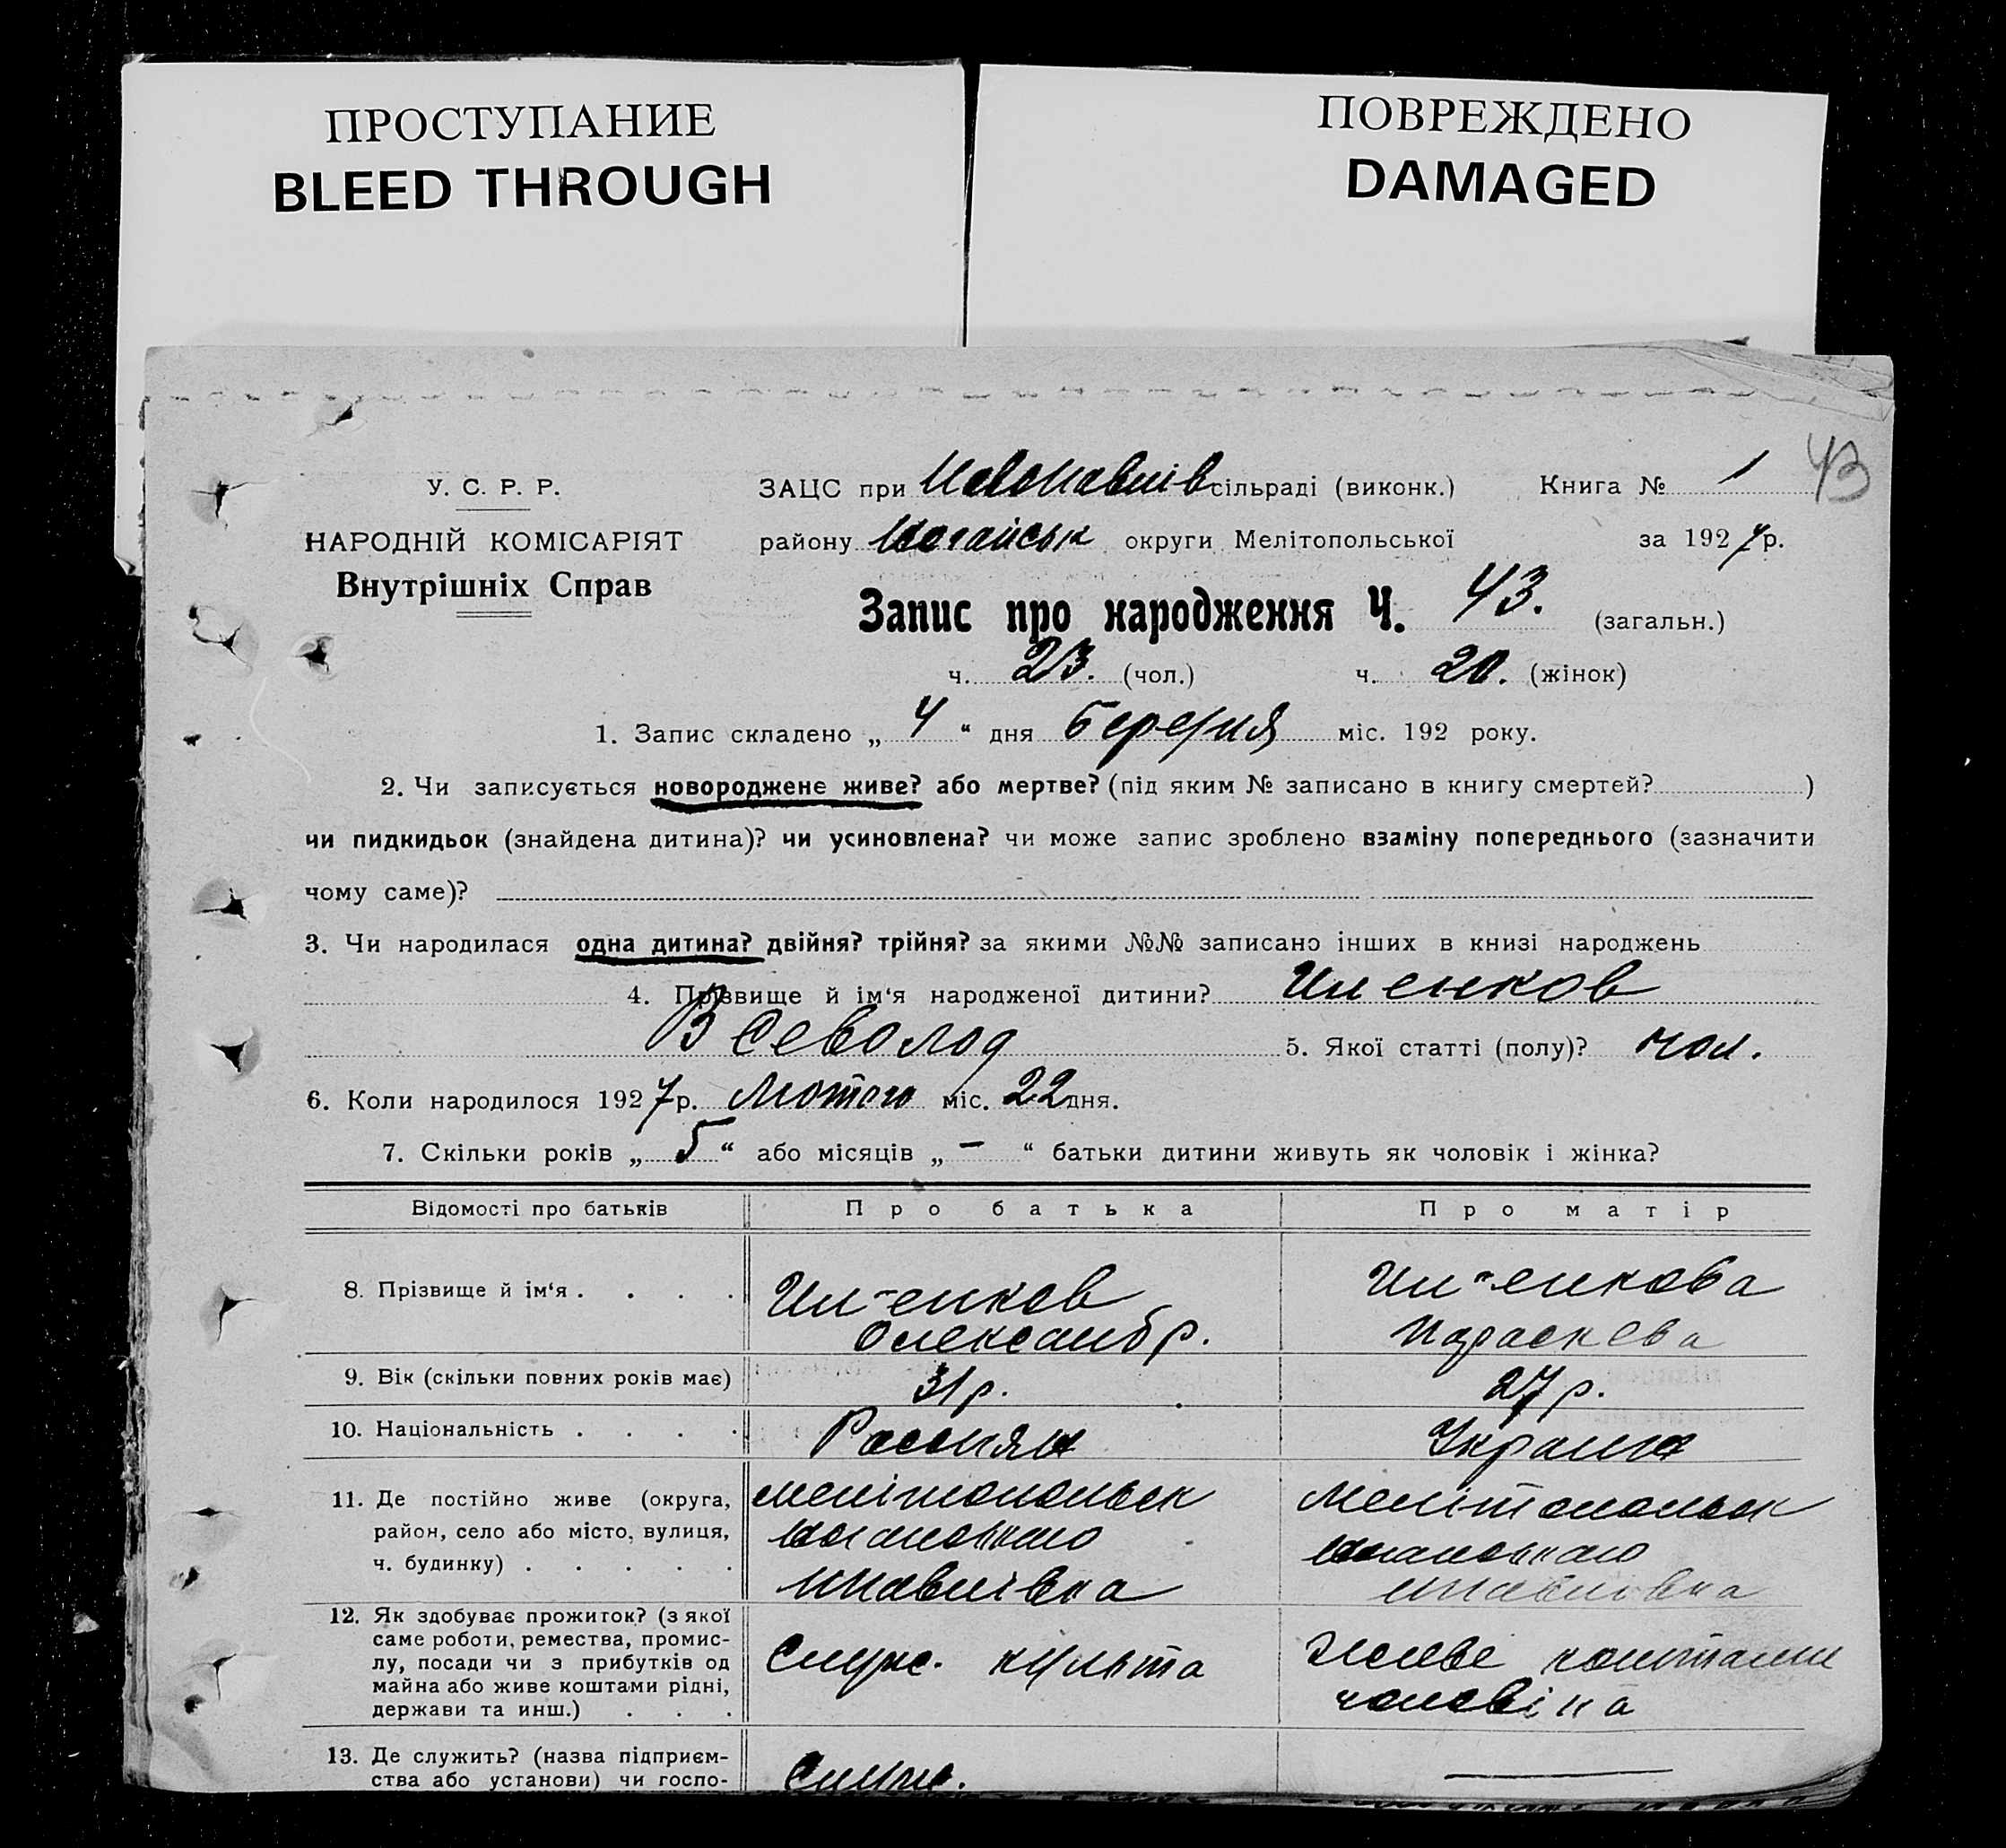 ПРОСТУПАНИЕ
BLEED THROUGH
ПОВРЕЖДЕНО
DAMAGED
43
У. С. Р. Р.
НАРОДНІЙ КОМІСАРІЯТ
Внутрішніх Справ
ЗАЦС при Новопавлів сільраді (виконк.) Книга № 1
району Ногайськ округи Мелітопольської за 1927р.
Запис про народження Ч. 43. (загальн.)
ч. 23. (чол.) ч. 20. (жінок)
1. Запис складено „ 4 “ дня березня міс. 192 року.
2. Чи записується новороджене живе? або мертве? (під яким № записано в книгу смертей? )
чи пидкидьок (знайдена дитина)? чи усиновлена? чи може запис зроблено взаміну попереднього (зазначити
чому саме)?
3. Чи народилася одна дитина? двійня? трійня? за якими №№ записано інших в книзі народжень
4. Прізвище й ім‘я народженої дитини?
Всеволод 5. Якої статті (полу)? чол.
6. Коли народилося 1927р. Лютого міс. 22 дня.
7. Скільки років „ 5 “ або місяців „ – “ батьки дитини живуть як чоловік і жінка?
Відомості про батьків Про батька Про матір
8. Прізвище й ім‘я . . . .
Олександр. Параскева
9. Вік (скільки повних років має) 31 р. 27 р.
10. Національність . . . . Росіянин Україна
11. Де постійно живе (округа, Мелітопольськ Мелітопольськ
район, село або місто, вулиця,
ч. будинку) . . . . . Нпавлівка Нпавлівка
12. Як здобуває прожиток? (з якої
саме роботи, ремества, промис-
лу, посади чи з прибутків од Служ. культа Живе коштами
майна або живе коштами рідні, чоловіка
держави та инш.) . . .
13. Де служить? (назва підприєм-
ства або установи) чи госпо- Служ.